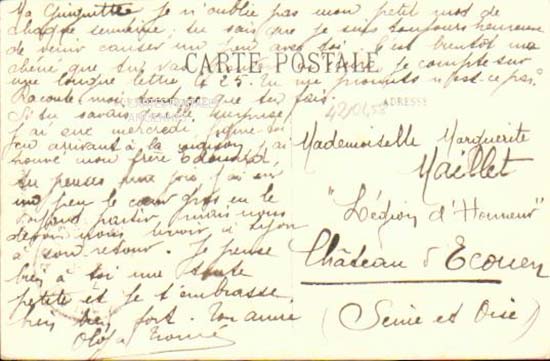 Ma Guiguitte je n'oublie pas mon petit mot de
chaque semaine, tu sais que je suis toujours heureuse
de venir causer un peu avec toi. C'est bientôt ma
chérie que tu vas Je compte sur
une longue lettre le 25. Tu me promets n'est-ce pas?
CARTE POSTALE
Raconte moi tout ce que tu fais.
Si tu savais quelle surprise
j'ai eue mercredi,
en arrivant à la maison, j'ai
trouvé mon frère Edouard,
tu penses ma joie j'ai eu
un peu le cœur gros en le
partir, mais nous
devons nous revoir à
son retour. Je pense
bien à toi ma toute
petite et je t'embrasse
bien bien fort. Ton amie
ADRESSE
Mademoiselle Marguerite
Maillet
"Légion d'Honneur"
Château d'Ecouen
(Seine et Oise)